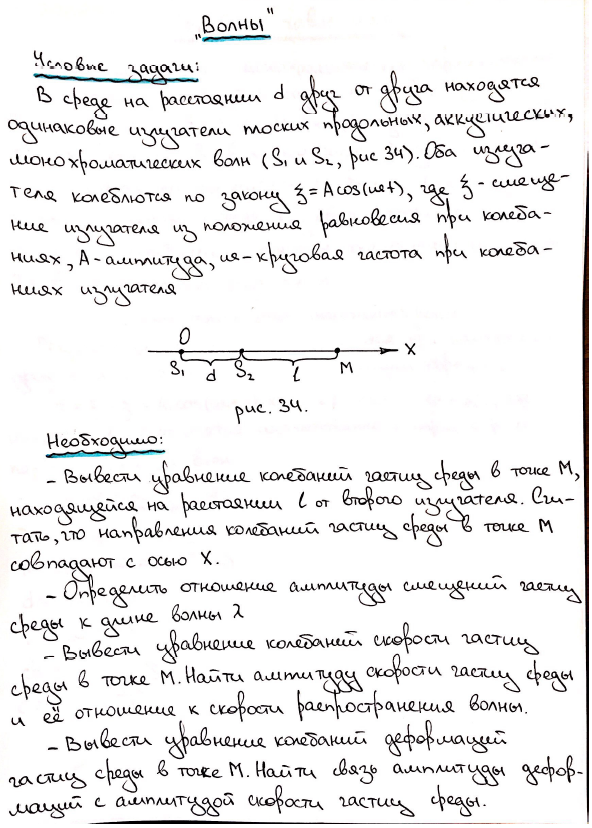 "Волны"
Условые задачи:
В среде на расстоянии d друг от друга находятся
одинаковые излучатели плоских продольных, аккустических,
монохроматических волн (S₁ и S₂, рис 34). Оба излуча-
теля колеблются по закону ξ = A cos(ωt), где ξ - смеще-
ние излучателя из положения равновесия при колеба-
ниях, A - амплитуда, ω - круговая частота при колеба-
ниях излучателя
O
X
S₁ d S₂ l M
рис. 34.
Необходимо:
- Вывести уравнение колебаний частиц среды в точке M,
находящейся на расстоянии l от второго излучателя. Счи-
тать, что направления колебаний частиц среды в точке M
совпадают с осью X.
- Определить отношение амплитуды смещений частиц
среды к длине волны λ
- Вывести уравнение колебаний скорости частиц
среды в точке M. Найти амплитуду скорости частиц среды
и её отношение к скорости распространения волны.
- Вывести уравнение колебаний деформаций
частиц среды в точке M. Найти связь амплитуды дефор-
маций с амплитудой скорости частиц среды.